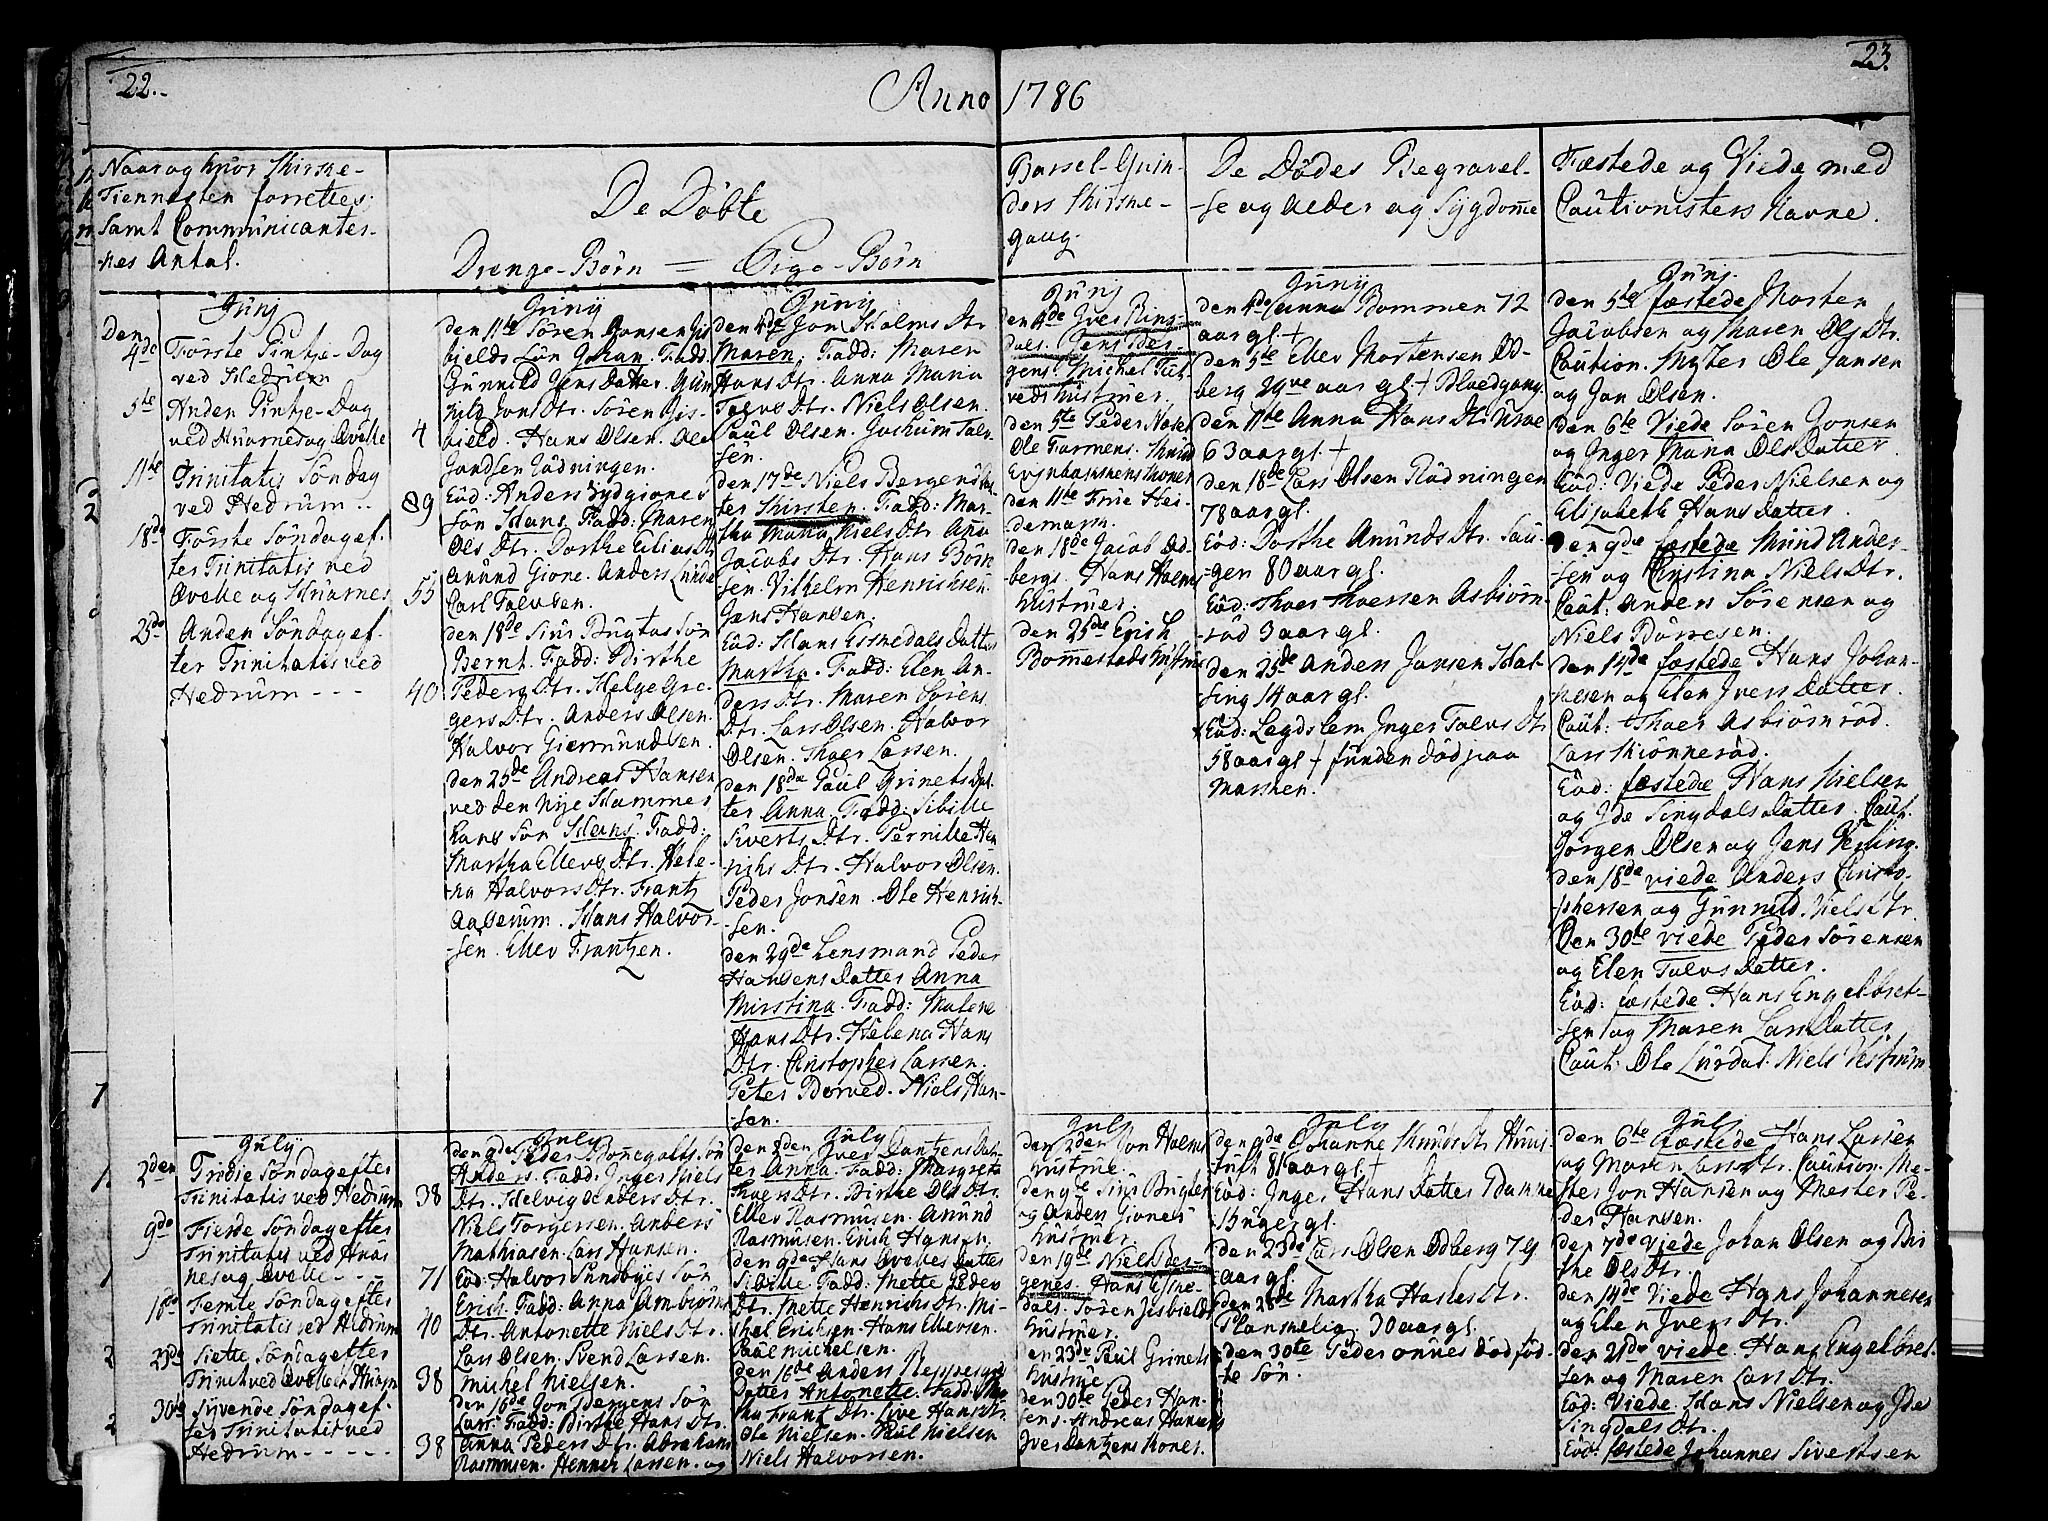 22.
Anno 1786
23.
Naar og hvor Kirke-
Tiennesten forrettes,
samt Communicanter-
nes Antal.
De Döbte
Drenge-Börn = Pige-Börn
Barsel-Quin-
ders Kirke-
gang.
De Dödes Begravel-
-se og Alder og Sygdome
Fæstede og Viede med
Cautionisters Navne.
Junj
Den
4de Förste Pintze-Dag
ved Hedrum
5te Anden Pintze-Dag
ved Kvarnes og Qvelle 4
11te Trinitatis Söndag
ved Hedrum .. 89
18de Förste Söndag ef-
ter Trinitatis ved
Qvelle og Kvarnes 55
25de Anden Söndag ef-
ter Trinitatis ved
Hedrum - - - 40
Junij
den 11te Sören Jonsen Gis-
bields Sön Johan. Fadd:
Gunnild Jens Datter. Gun
hild Jons Dtr. Sören Gis-
bield. Hans Olsen. Ole
Jondsen Rödningen.
Eod: Anders Sydgiones
Sön Hans. Fadd: Maren
Ols Dtr. Dorthe Elias Dtr
Amund Gione. Anders Lunde
Carl Talvsen.
den 18de Siur Bugtas Sön
Bernt. Fadd: Birthe
Peders Dtr. Helge Gre-
gers Dtr. Anders Olsen.
Halvor Giermundsen.
den 25de Andreas Hansen
ved den Nye Hammer
hans Sön Hans. Fadd:
Martha Ellevs Dtr. Hele-
na Halvors Dtr. Frantz
Aagerum. Hans Halvor-
-sen. Ellev Frantzen.
Junij
den 4de Jon Holms Dtr
Maren. Fadd: Maren
Hans Dtr. Anna Maria
Talvs Dtr. Niels Olsen.
Paul Olsen. Jochum Talv-
sen.
den 17de Niels Bergens Dat-
ter Kirsten. Fadd: Mar-
tha Maria Niels Dtr. Ana
Jacobs Dtr. Hans Börn
sen. Vilhelm Henrichsen.
Jens Hansen.
Eod: Hans Eskedals Datter
Martha. Fadd: Elen An-
ders Dtr. Maren Sörens
Dtr. Lars Olsen. Halvor
Olsen. Thoer Larsen.
den 18de Paul Grinets Dat-
ter Anna. Fadd: Sibille
Siverts Dtr. Pernille Hen
richs Dtr. Halvor Olsen.
Peder Jonsen. Ole Henrich-
-sen.
den 29de Lensmand Peder
Hansens Datter Anna
Kirstina. Fadd: Malene
Hans Dtr. Helena Hans
Dtr. Christopher Larsen.
Peter Borved. Niels Han-
-sen.
Junj
den 4de Iver Ring-
dals. Jens Ber-
gens. Michel Tut-
veds hustruer.
den 5te Peder Nalum
Ole Farmens. Knud
Evenbakkens koner
den 11te Frue Hei-
demark.
den 18de Jacob Od-
bergs. Hans Holms
hustruer.
den 25de Erich
Bommestads hustrue
Junij
den 4de Anna Bommen 72
aar gl. +
den 5te Ellev Mortensen Od-
berg 29ve aar gl. + Blodgang.
den 11te Anna Hans Dtr Unoe
63 aar gl. +
den 18de Lars Olsen Rödningen
78 aar gl.
Eod: Dorthe Amunds Dtr. Hau-
gen 80 aar gl.
Eod: Thoer Thoersen Asbiörn-
röd 3 aar gl.
den 25de Anders Jansen Hal-
sing 14 aar gl.
Eod: Legdslem Inger Talvs Dtr
58 aar gl + funden död paa
Marken.
Junj.
den 5te fæstede Morten
Jacobsen og Maren Ols Dtr.
Caution. Mester Ole Jansen
og Jon Olsen.
den 6te Viede Sören Jonsen
og Inger Maria Ols Datter.
Eod: Viede Peder Nielsen og
Elisabeth Hans datter.
den 9de fæstede Knud Ander-
sen og Christina Niels Dtr.
Caut: Anders Sörensen og
Niels Börresen.
den 14de fæstede Hans Johan-
nesen og Elen Ivers Datter.
Caut: Thoer Asbiörnröd.
Lars Skiönneröd.
Eod: fæstede Hans Nielsen
og Ide Singdals Datter. Caut.
Jörgen Olsen og Jens Verling.
den 18de viede Anders Christo-
phersen og Gunnild Niels Dtr.
Den 30te viede Peder Sörensen
og Elen Talvs Datter.
Eod: fæstede Hans Engelbret-
-sen og Maren Lars Datter
Caut: Ole Lurdal. Niels Vestrum.
Julij
2den Tridie Söndag efter
Trinitatis ved Hedrum 38
9de Fierde Söndag efter
Trinitatis ved Kvar
nes og Qvelle - - 71
16de Femte Söndag efter
Trinitatis ved Hedrum 40
23de Siette Söndag efter
Trinit ved Qvelle og Kvarn 38
30te Syvende Söndag ef-
ter Trinitatis ved
Hedrum - - - - - 38
July
den 9de Peder Bonegolts Sön
Anders. Fadd: Inger Niels
Dtr. Helvig Anders Dtr.
Niels Torgersen. Anders
Mathiasen. Lars Hansen.
Eod: Halvor Sundbyes Sön
Erich. Fadd: Anna Ambiörns
Dtr. Antonette Niels Dtr.
Lars Olsen. Svend Larsen.
Michel Nielsen.
den 16de Jon Bergens Sön
Lars. Fadd: Birthe Hans Dtr.
Anna Peders Dtr. Abraham
Rasmusen. Henner Larsen. og
July
den 2den Iver Dantzens Dat-
ter Anna. Fadd: Margreta
Thoers Dtr. Birthe Ols Dtr.
Ellev Rasmusen. Amund
Rasmusen. Erich Hansen.
den 9de Hans Qvelles Datter
Sibille. Fadd: Mette Peder
Dtr. Mette Henrichs Dtr. Mi-
chel Erichsen. Hans Ellevsen.
Paul Michelsen.
den 16de Anders
Datter Antonette. Fadd: Mar
tha Frantz Dtr. Live Hans Dtr.
Ole Nielsen. Paul Nielsen
Niels Halvorsen.
July
den 2den Jon Holms
hustrue.
den 9de Siur Bugtes
og Anders Giones
hustruer.
den 19de Niels Ber-
gens. Hans Eske-
dals. Sören Gisbields
hustruer.
den 23de Paul Grinets
hustrue
den 30te Peder Han-
sens. Andreas Hansens
Iver Dantzens koner.
July
den 9de Johanne Knuds Dtr Hvis-
tuft 81 aar gl. +
Eod: Inger Hans Datter Damne
15 uger gl.
den 23de Lars Olsen Odberg 79
aar gl.
den 28de Martha Haslets Dtr.
30 aar gl.
den 30te Peder död föd-
te Sön.
July
den 6te fæstede Hans Larsen
og Maren Lars Dtr. Caution. Me-
ster Jon Hansen og Mester Pe-
der Hansen.
den 7de Viede Johan Olsen og Bir
the Ols Dtr.
den 14de Viede Hans Johannesen
og Elen Ivers Dtr.
den 21de viede Hans Engelbret-
sen og Maren Lars Dtr.
Eod: Viede Hans Nielsen og Ide
Singdals Dtr.
Eod: fæstede Johannes Sivertsen